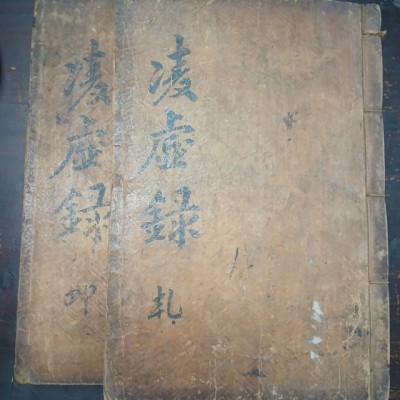 凌虛錄 乹
凌虛錄 坤